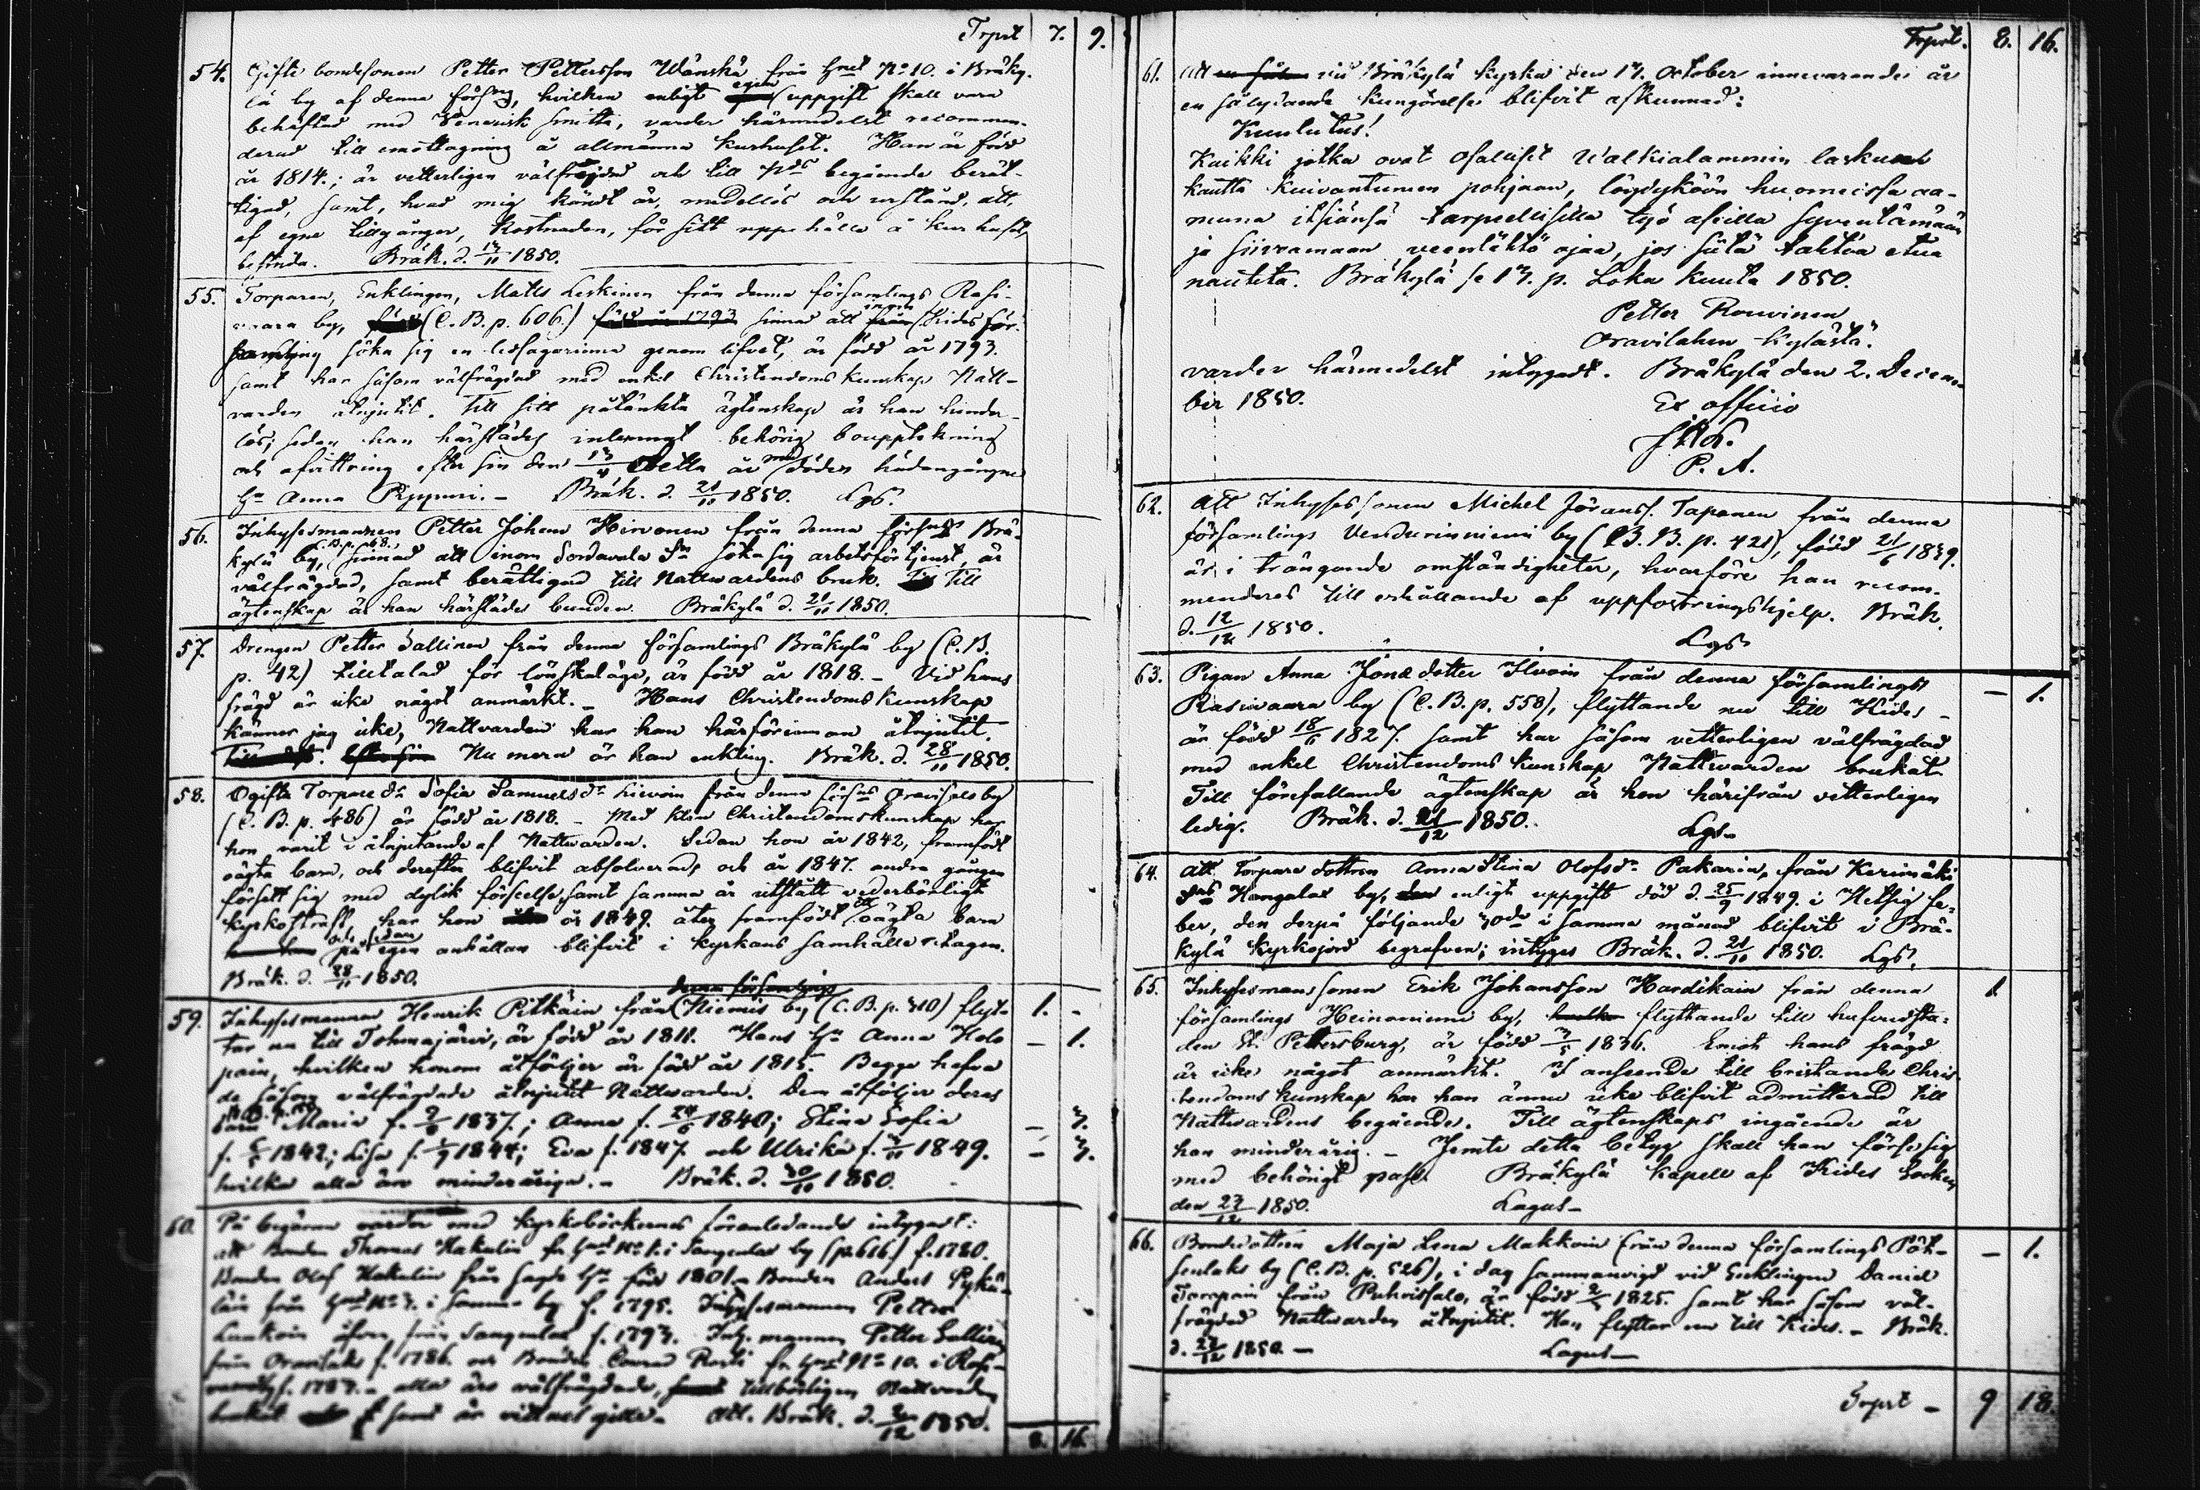 Trpt 7. 9.
54. Gifte bondesonen Petter Pettersson Wänskä från Hmt No 10. i Bräky-
lä by af denna förs:ng, hvilken enligt egen uppgift skall vara
behäftad med Venerisk smitta, varder härmedelst recommen-
derad till emottagning å allmänna kurhuset. Han är född
år 1814.; är vetterligen välfrejdad och till Nds begående berät-
tigad, samt, hvad mig kändt är, medellös och urstånd, att,
af egne tillgångar, kostnaden, för sitt uppehälle å kurhuset,
befinda. Bräk. d. 1850.
55. Torparen, Enklingen, Matts Leskinen från denna församlings Rasi-
vaara by, (C.B.p. 606.) född år 1793 sinnad att inom Kides för-
samling söka sig en ledsagarinna genom lifvet, är född år 1793.
samt har såsom välfrägdad med enkel Christendoms kunskap Natt-
varden åtnjutit. Till sitt påtänkta ägtenskap är han hinder-
lös; sedan han härstädes inlemnat behörig bouppteckning
och afvittring efter sin den detta år med döden hädangångne
Hu Anna Pyypuri. - Bräk. d. 21/11 1850. Lgs.
56. Inhysesmannen Petter Johan Hirvonen från denna förs:gs Brä-
kylä by, sinnad att inom Sordavala Sn söka sig arbetsförtjenst, är
välfrägdad, samt berättigad till Nattvardens bruk. Till
ägtenskap är han härstädes bunden. Bräkylä d. 21/11 1850.
57. Drengen Petter Sallinen från denna församlings Bräkylä by (C.B.
p. 42) tilltalad för lönskaläge, är född år 1818. - Vid hans
frägd är icke något anmärkt. - Hans Christendoms kunskap
känner jag icke, Nattvarden har han härförinnan åtnjutit.
Nu mera är han enkling. Bräk. d. 28/11 1850.
58. Ogifta Torpare dr Sofia Samuelsdr Hievoin från denna förs:gs Oravisalo by
(C.B.p. 486) är född år 1818. - Med klen Christendomskunskap har
hon varit i åtnjutande af Nattvarden. Sedan hon år 1842, framfödt
oägta barn, och derefter blifvit absolverad, och år 1847. andra gången
försett sig med dylik förseelse, samt samma år utstått vederbörligt
kyrkostraff, har hon år 1849. åter framfödt ett oägta barn
och sedan på egen anhållan blifvit i kyrkans samhälle intagen.
Bräk. d. 28/11 1850.
59. Inhysesmannen Henrik Pitkäin från denna församlings Niemis by (C.B.p. 310) flyt- 1. -
tar nu till Tohmajärvi, är född år 1811. Hans Hu Anna Holo - 1.
pain, hvilken honom åtföljer är född år 1815. Begge hafva
de såsom välfrägdade åtnjutit Nattvarden. Dem åtföljer deras
barn Maria f. 1837.; Anna f. 1840; Stina Sofia - 3.
f. 1842; Lisa f. 1844; Eva f. 1847 och Ulrika f. 1849. - 3.
hvilka alla äro minderåriga. - Bräk. d. 1850.
60. På begäran varder med kyrkoböckernes föranledande intygadt:
att Bonden Thomas Hakulin fr. Hmt No 1. i Sangenlax by (p. 616.) f. 1780.
Bonden Olof Hakulin från sagde Hn född 1801. Bonden Anders Pykä-
läin från Hmt No 3. i samma by f. 1795. Inhysesmannen Petter
Laakoin äfven från Sangenlax f. 1793. Inh. mannen Petter Sallinen
från Oravilaks f. 1786. och Bonden Conrad Rosti fr. Hmt No 10. i Rasi-
vaara by f. 1787. - alla äro välfrägdade, tillbörligen Nattvarden
brukat samt är vittnesgille. Att. Bräk. d. 1850.
8. 16.
Trpt. 8. 16.
61. Att vid Bräkylä kyrka den 13. October innevarande år
en sålydande kungörelse blifvit afkunnad:
Kuulutus!
Kaikki jotka ovat Osaliset Walkialammin laskun
kautta kuivantunen pohjaan, löydyköön huomeissa aa-
muna itsiänsä tarpeellisilla työ aseilla syventämään
ja siivramaan veenlähtö ojaa, jos siitä tahtoa etua
nautita. Bräkylä se 13. p. Loka kuuta 1850.
Petter Rouvinen
Oravilahen kylästä.
varder härmedelst intygadt. Bräkylä den 2. Decem
ber 1850. Ex officio
P. A.
62. Att Inhyses sonen Michel Jöranss. Tapanen från denna
församlings Vendurinniemi by (C.B.p. 421), född 21/6 1839.
är i trängande omständigheter, hvarföre han recom-
menderas till erhållande af uppfostringshjelp. Bräk.
d. 12/12 1850. Lgs
63. Pigan Anna Jönsdotter Ilvoin från denna församlings - 1.
Rasivaara by (C.B.p. 558), flyttande nu till Kides -
är född 18/11 1827. samt har såsom vetterligen välfrägdad
med enkel Christendoms kunskap Nattvarden brukat.
Till förefallande ägtenskap är hon härifrån vetterligen
ledig. Bräk. d. 21/12 1850. Lgs-
64. Att Torpare dottren Anna Stina Olofsdr Pakarin, från Kerimäki
Sns Hangalax by, enligt uppgift död d. 25/9 1849. i Hetsig fe-
ber, den derpå följande 30de i samma månad blifvit i Brä-
kylä kyrkojord begrafven; intyges Bräk. d. 21/11 1850. Lgs.
65. Inhysesmans sonen Erik Johansson Hardikain från denna 1.
församlings Heinoniemi by, flyttande till hufvudsta-
den St. Petersburg, är född 3/5 1836. Emot hans frägd
är icke något anmärkt. I anseende till bristande Chris-
tendoms kunskap har han ännu icke blifvit admitterad till
Nattvardens begående. Till ägtenskaps ingående är
han minderårig. - Jemte detta betyg skall han förse sig
med behörigt pass. Bräkylä Kapell af Kides Socken
den 27/12 1850. Lagus-
66. Bondedottren Maja Lena Makkoin från denna församlings Pöt- - 1.
senlaks by (C.B.p. 526), i dag sammanvigd vid Enklingen Daniel
Toropain från Puhoissalo, är född 1825. samt har såsom väl-
frägdad Nattvarden åtnjutit. Hon flyttar nu till Kides. - Bräk.
d. 27/12 1850 - Lagus-
Trprt - 9 18.